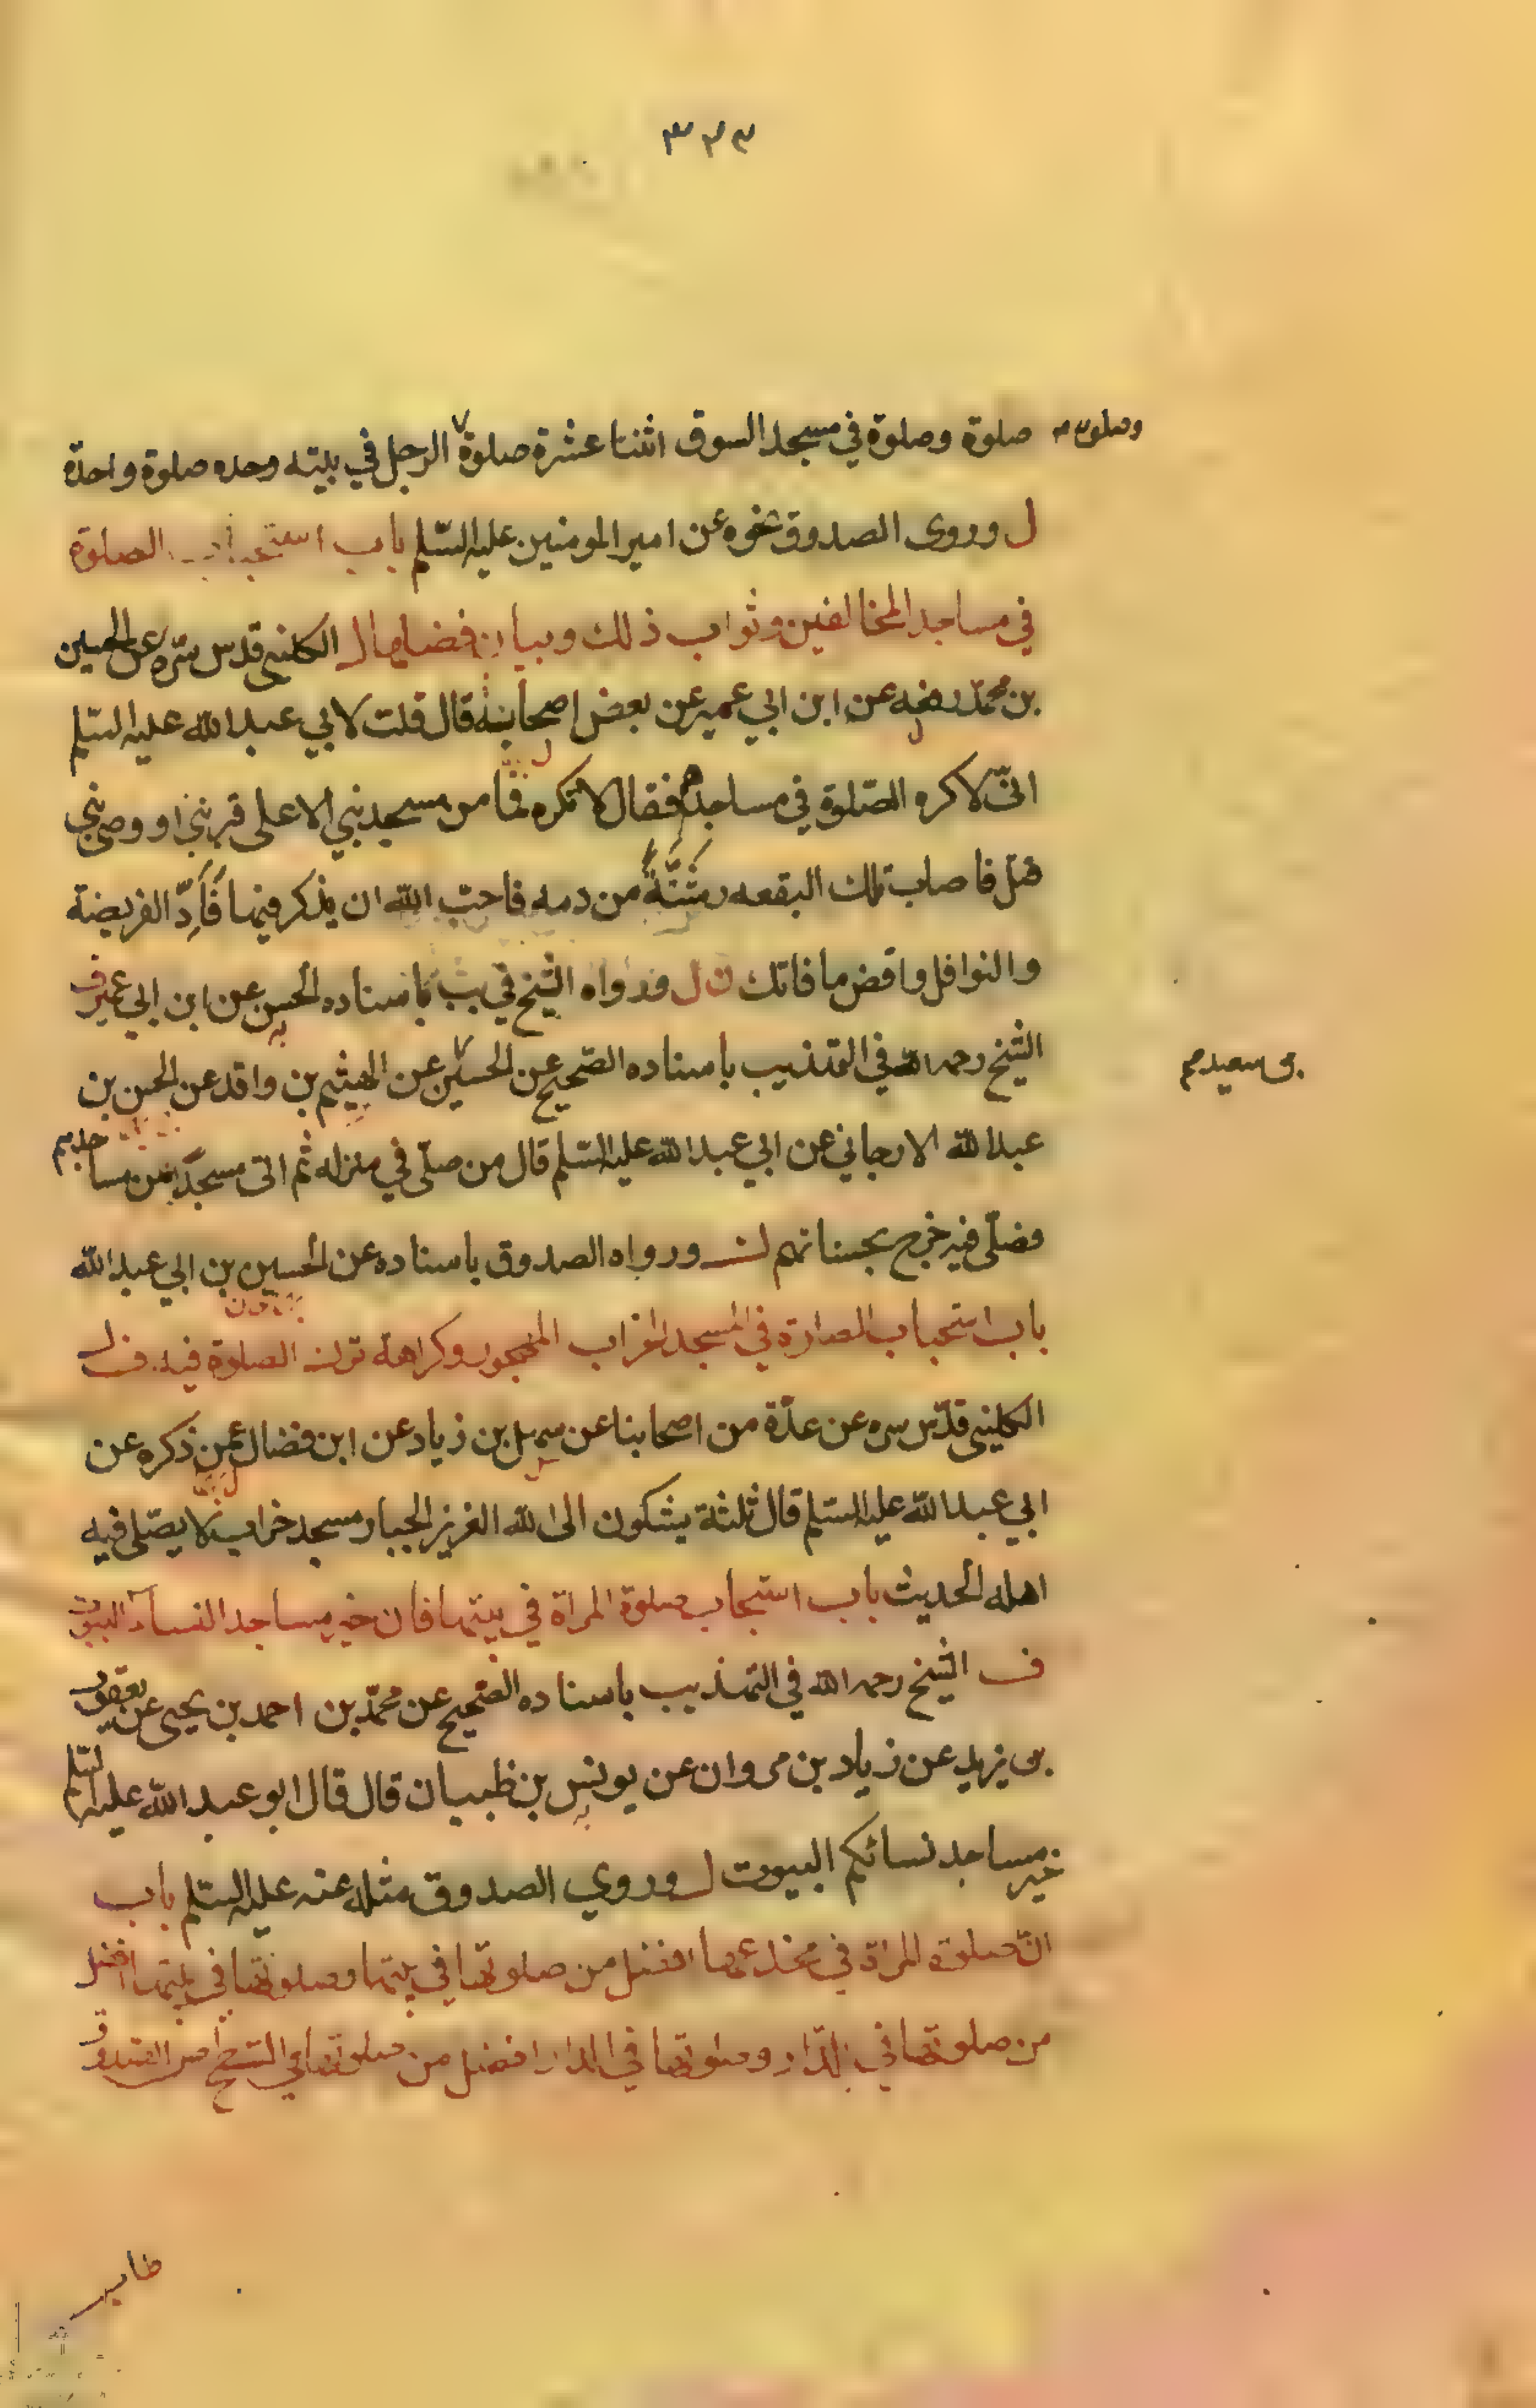 ٣٢٣
صلوة وصلوة في مسجد السوق اثنتا عشرة صلوة الرجل في بيته وحده صلوة واحدة
وصلوة
ل وروى الصدوق نحوه عن امير المومنين عليه السّلم باب استحباب الصلوة
في مساجد المخالفين وثواب ذلك وبيان فضلها ل الكليني قدس سرّه عن الحسين
بن محمّد رفعه عن ابن ابي عمير عن بعض اصحابنا قال قلت لابي عبدالله عليه السلم
انّي لاكره الصّلوة في مساجدهم فقال لا تكره فما من مسجد بني الا على قبر نبي او وصي نبي
قتل فاصاب تلك البقعه رشّةً من دمه فاحب الله ان يذكر فيها فَأَدِّ الفريضة
والنوافل واقض ما فاتك ل ورواه الشيخ في يب باسناده الحسين عن ابن ابي عمير ف
الشيخ رحمه الله في التهذيب باسناده الصّحيح عن الحسين عن الهيثم بن واقد عن الحسن بن
بن سعيد
عبدالله الارجاني عن ابي عبدالله عليه السّلم قال من صلّى في منزله ثم اتى مسجدًا من مساجدهم
فصلّى فيه خرج بحسناتهم ل ورواه الصدوق باسناده عن الحسين بن ابي عبدالله
باب استحباب الصلوة في المسجد الخراب المهجور وكراهة ترك الصلوة فيه ف ل
الكليني قدّس سره عن عدّة من اصحابنا عن سهل بن زياد عن ابن فضال عمن ذكره عن
ابي عبدالله عليه السّلم قال ثلثة يشكون الى الله العزيز الجبار مسجد خراب لا يصّلي فيه
اهله الحديث باب استحباب صلوة المراة في بيتها فان خير مساجد النساء البيوت
ف الشيخ رحمه الله في التهذيب باسناده الصّحيح عن محمّد بن احمد بن يحيى عن يعقوب
بن يزيد عن زياد بن مروان عن يونس بن ظبيان قال قال ابو عبدالله عليه السّلم
خير مساجد نسائكم البيوت ل وروي الصدوق مثله عنه عليه السّلم باب
انّ صلوة المراة في مخدعها افضل من صلوتها في بيتها وصلوتها في بيتها افضل
من صلوتها في الدّار وصلوتها في الدار افضل من صلوتها في السّطح الصدوق